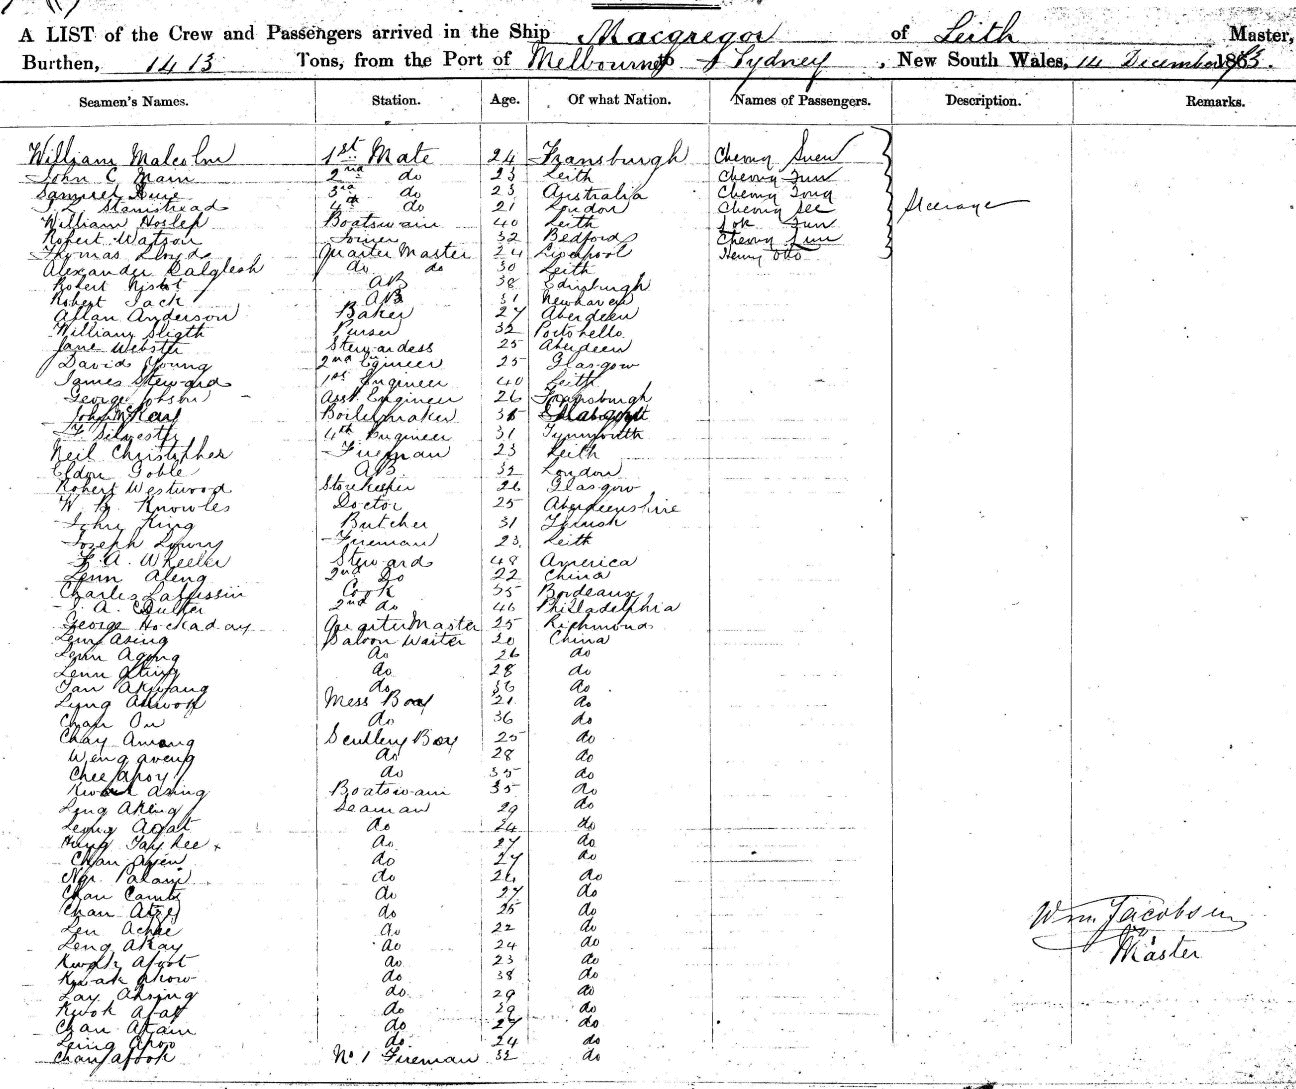 A LIST of the Crew and Passengers arrived in the Ship Macgregor of Leith Master,
Burthen, 1413 Tons, from the Port of Melbourne to Sydney, New South Wales, 14 December
Seamen's Names. Station. Age. Of what Nation. Names of Passengers. Description. Remarks.
William Malcolm 1st Mate 24 Cheong
John C Main 2nd do 23 Leith Cheong Fun
Samuel 3rd do 23 Australia Cheong Tong
Stanistread 4th do 21 London Cheong See
William Hoslep Boatswain 40 Leith Fun
Robert Watson 32 Bedford Cheong
Thomas Lloyd Quarter Master 24 Liverpool Henry
Alexander Dalglesh do do 30 Leith
Robert AB 38 Edinburgh
Robert Jack AB 31 Newhaven
Allan Anderson Baker 27 Aberdeen
William Sligth Purser 32 Portobello
Jane Webster Stewardess 25 Aberdeen
David Young 2nd Egineer 25 Glasgow
James Steward 1st Engineer 40 Leith
George Asst Engineer 26
John McKay Boilermaker
Silvester 4th Engineer 31 Tynmouth
Neil Christopher Fireman 23 Leith
Eldon Goble AB 32 London
Robert Westwood Storekeeper 26 Glasgow
W. B. Knowles Doctor 25 Aberdeenshire
John King Butcher 31
Joseph Lowry Fireman 23 Leith
F. A. Wheeler Steward 48 America
Lenn Aleng 2nd Do 22 China
Charles Cook 35 Bordeaux
A. 2nd do 46 Philladelphia
George Hockaday Quarter Master 25 Richmond
Lenn Asing Saloon Waiter 20 China
Lenn Agong do 26 do
Lenn do 28 do
Tan do 36 do
Leung Mess Boy 21 do
Chan On do 36 do
Chay Among Scullery Boy 25 do
Weng do 28 do
Chee Apoy do 35 do
Asing Boatswain 35 do
Leng Akeng Seaman 29 do
Leong Agat do 24 do
do 27 do
Chan Ayen do 27 do
do 26 do
Chan do 27 do
Chan do 25 do
Len do 22 do
Leng Akay do 24 do
Kwok Afoot do 23 do
do 38 do
Lay Ahsing do 29 do
Kwok Afat do 29 do
Chan Atam do 27 do
Leing do 24 do
Chan Afook No 1 Fireman 32 do
Steerage
Wm. Jacobsen
Master